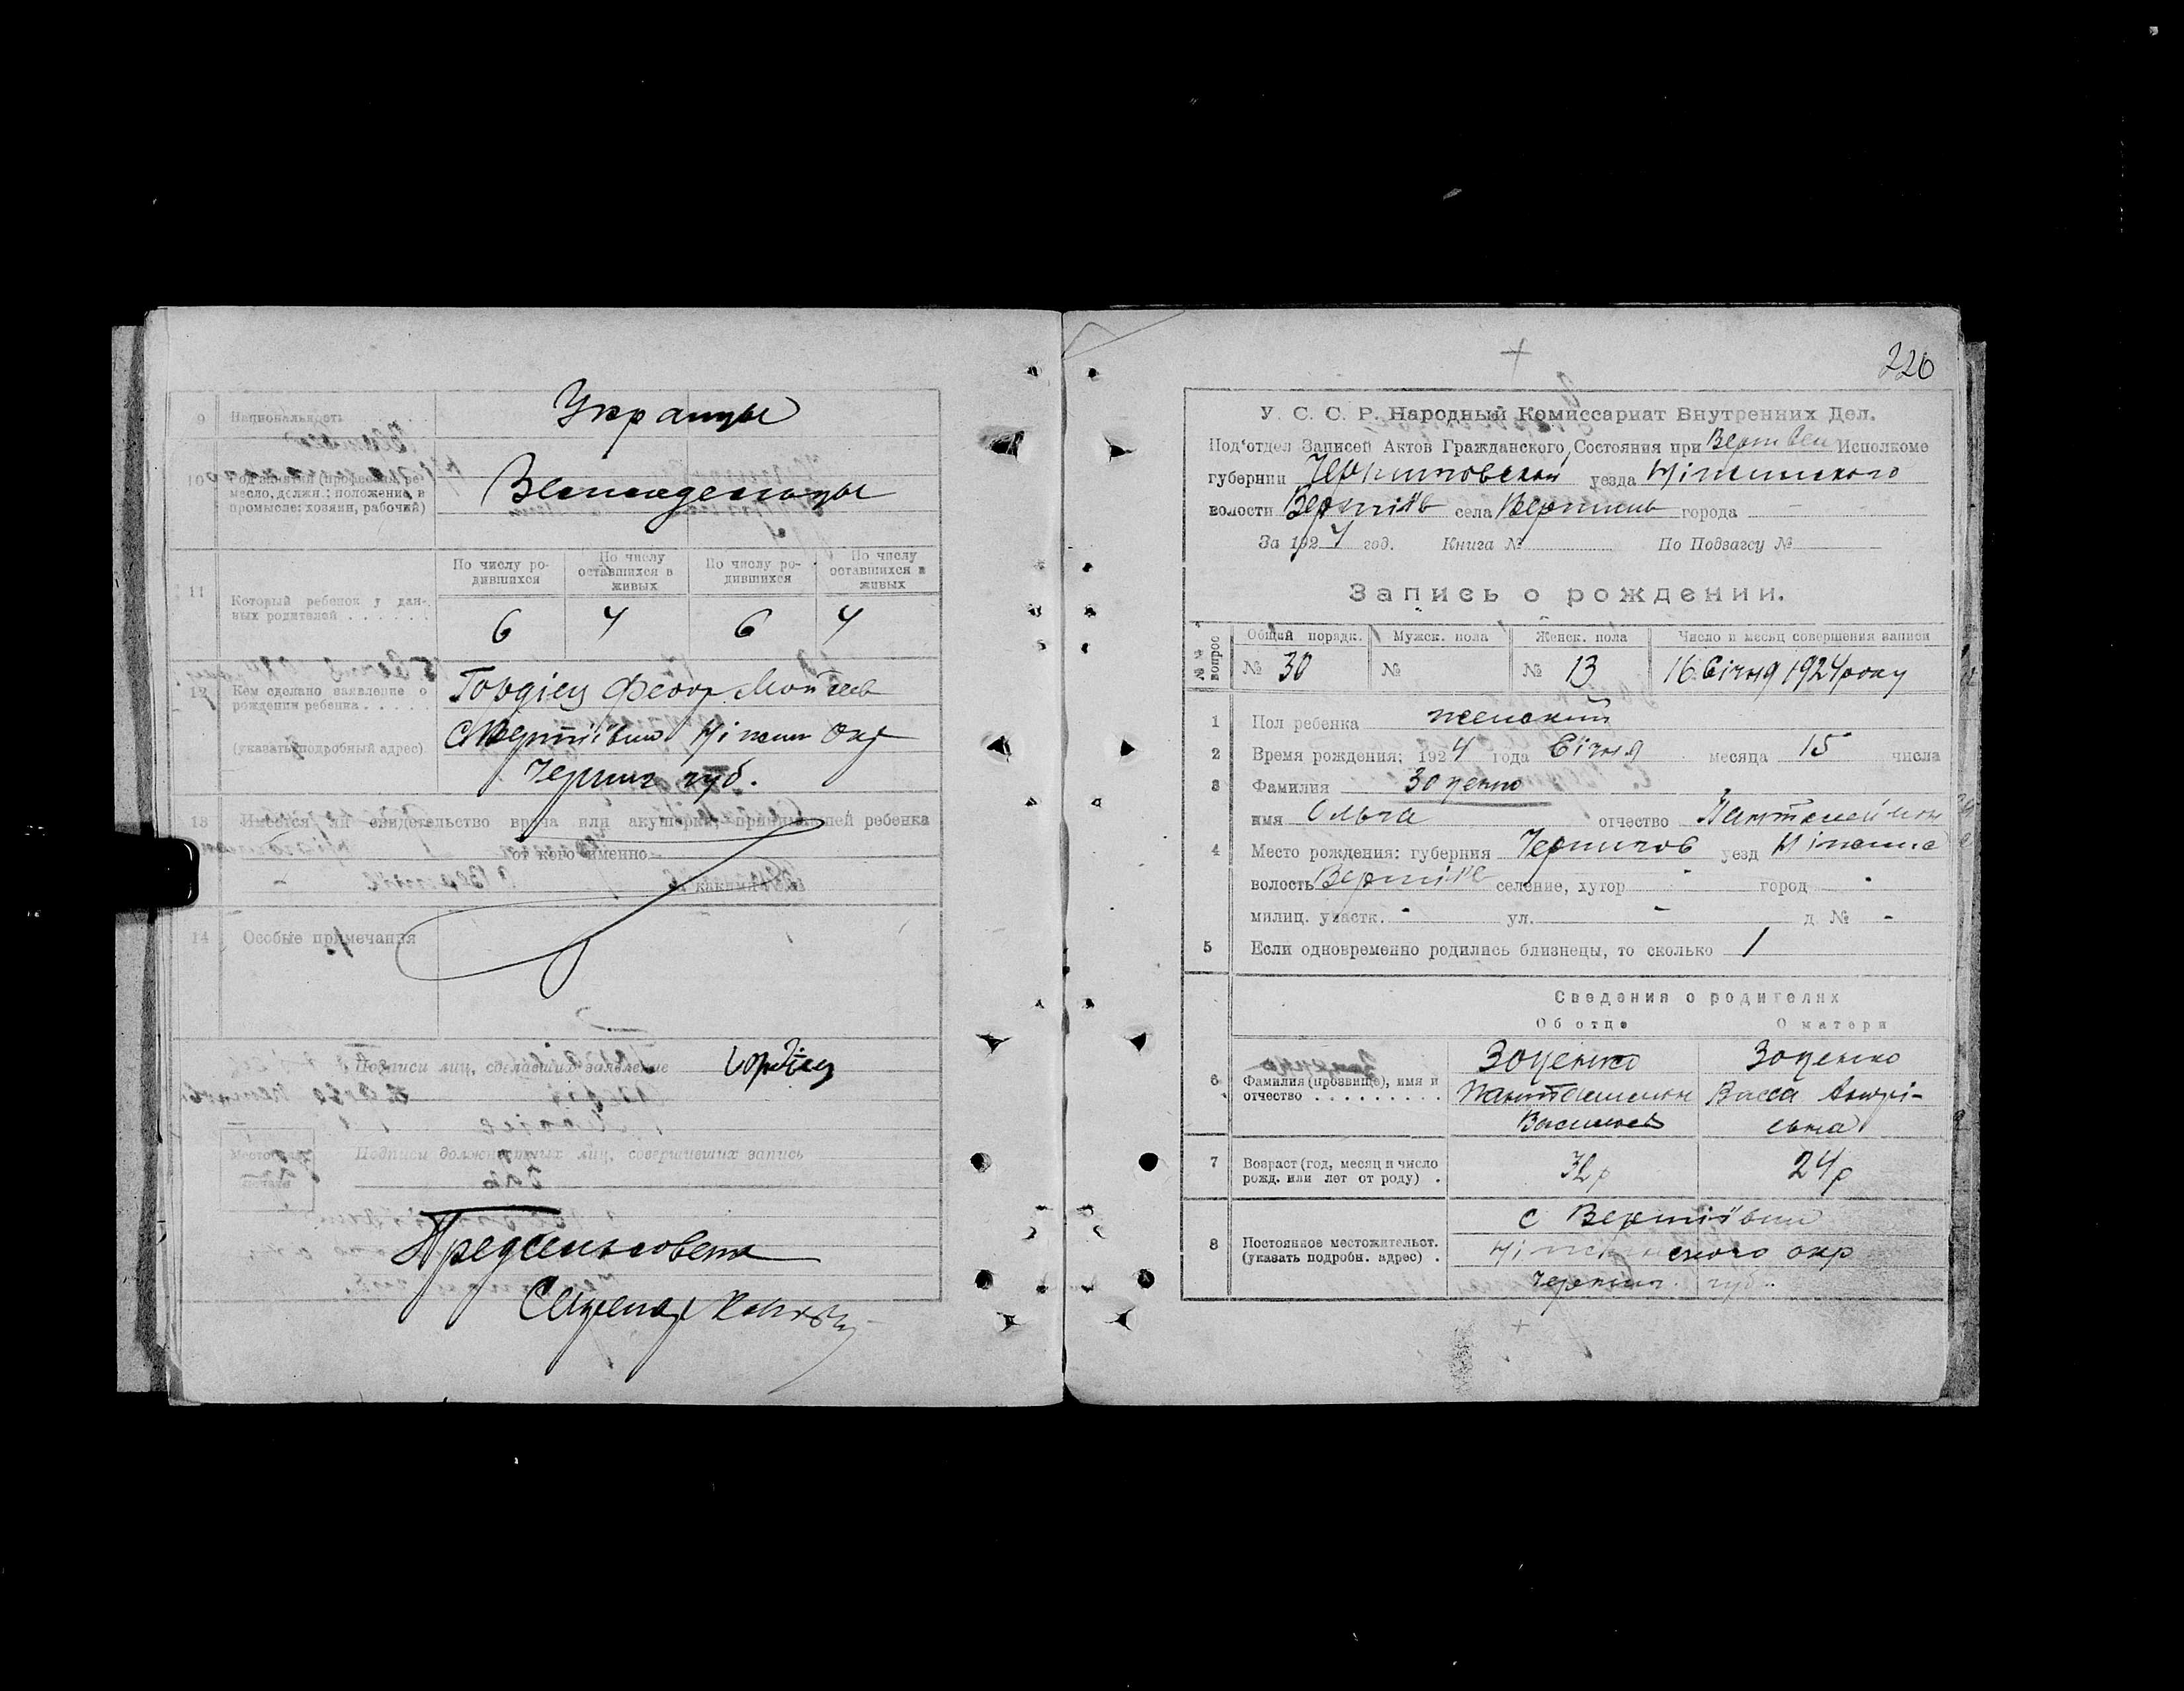 9 Национальность Украинцы
10 Род занятий (профессия, ре-
месло, должн.; положение, в
промысле: хозяин, рабочий)
По числу ро- По числу По числу ро- По числу
дившихся оставшихся в дившихся оставшихся в
живых живых
11 Который ребенок у дан-
ных родителей . . . . . .
6 4 6 4
12 Кем сделано заявление о
рождении ребенка . . . . .
(указать подробный адрес)
Гордіец Феодор
С Вертіївки Ніжин Окр
Черниг губ.
13 Имеется ли свидетельство врача или акушерки, принимавшей ребенка
от кого именно
за каким №
14 Особые примечания
Подписи лиц, сделавших заявление Гордіец
Место
печати
Подписи должностных лиц, совершивших запись
Предсельсовета
Секретар
220
У. С. С. Р. Народный Комиссариат Внутренних Дел.
Под'отдел Записей Актов Гражданского Состояния при Исполкоме
губернии Черниговской уезда Ніжинского
волости Вертіїв села города
За 1924 год. Книга № По Подзагсу №
Запись о рождении.
№№ вопрос Общий порядк. Мужск. пола Женск. пола Число и месяц совершения записи
№ 30 № № 13 16 Січня 1924 року
1 Пол ребенка женский
2 Время рождения: 1924 года Січня месяца 15 числа
3 Фамилия Зоценко
имя Ольга отчество
4 Место рождения: губерния Чернигов уезд
волость Вертіїв селение, хутор - город -
милиц. участк. - ул. - д № -
5 Если одновременно родились близнецы, то сколько 1
Сведения о родителях
Об отце О матери
6 Фамилия (прозвище), имя и
отчество . . . . . . . . .
Зоценко Зоценко
Пантелимон Васса Андрі-
Васильев євна
7 Возраст (год, месяц и число
рожд. или лет от роду) .
32 р 24 р
8 Постоянное местожительст.
(указать подробн. адрес) .
с Вертіївки
Ніжинского окр
Черниг. губ.